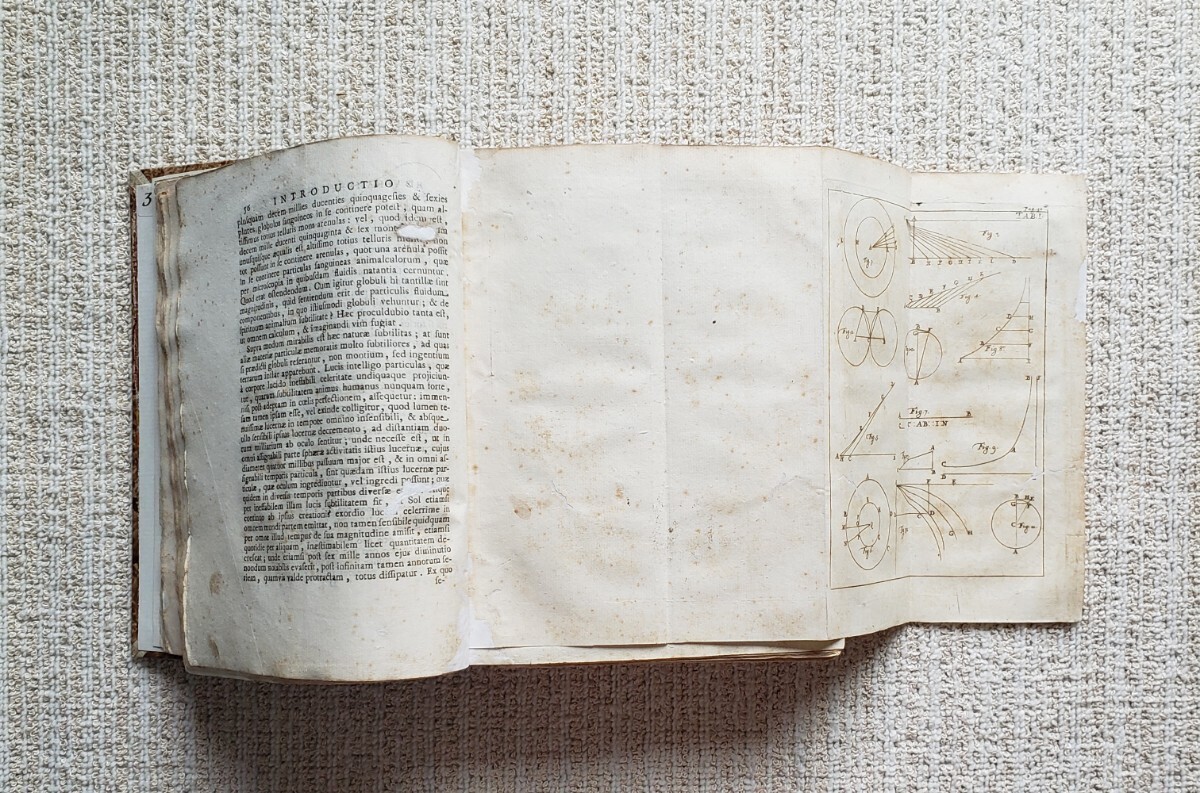 3
56 INTRODUCTIO
plusquam decem millies ducenties quinquagesies & ſexies
plures, globulos ſanguineos in ſe continere poteſt, quam al-
tiſſimus totius telluris mons arenulas: vel, quod idem eſt,
decem mille ducenti quinquaginta & ſex
unuſquiſque æqualis eſt, altiſſimo totius telluris non
tot poſſunt in ſe continere arenulas, quot una arenula poſſit
in ſe continere particulas ſanguineas animalculorum, quæ
per microſcopia in quibuſdam fluidis natantia cernuntur.
Quod erat oſtendendum. Cum igitur globuli hi tantillæ ſint
magnitudinis, quid ſentiendum erit de particulis fluidum
componentibus, in quo illiuſmodi globuli vehuntur; & de
ſpirituum animalium ſubtilitate? Hæc proculdubio tanta eſt,
ut omnem calculum, & imaginandi vim fugiat.
Supra modum mirabilis eſt hæc naturæ ſubtilitas; at ſunt
aliæ materiæ particulæ memoratis multo ſubtiliores, ad quas
ſi prædicti globuli referantur, non montium, ſed ingentium
terrarum inſtar apparebunt. Lucis intelligo particulas, quæ
à corpore lucido ineffabili celeritate undiquaque projiciun-
tur, quarum ſubtilitatem animus humanus nunquam forte,
niſi poſt adeptam in cœlis perfectionem, aſſequetur: immen-
ſam tamen ipſam eſſe, vel exinde colligitur, quod lumen te-
nuiſſimæ lucernæ in tempore omnino inſenſibili, & abſque
ullo ſenſibili ipſius lucernæ decremento, ad diſtantiam duo-
rum milliarium ab oculo ſentitur; unde neceſſe eſt, ut in
omni aſſignabili parte ſphæræ activitatis iſtius lucernæ, cujus
diameter quatuor millibus paſſuum major eſt, & in omni aſ-
ſignabili temporis particula, ſint quædam iſtius lucernæ par-
ticulæ, quæ oculum ingrediuntur, vel ingredi poſſunt; quæ
quidem in diverſis temporis partibus diverſæ
per ineffabilem illam lucis ſubtilitatem Sol etiamſi
continuo ab ipſius creationis exordio celerrime in
omnem mundi partem emittat, non tamen ſenſibile quidquam
per omne illud tempus de ſua magnitudine amiſit, etiamſi
quotidie per aliquam, ineſtimabilem licet quantitatem de-
creſcat; unde etiamſi poſt ſex mille annos ejus diminutio
nondum notabilis evaſerit, poſt infinitam tamen annorum ſe-
riem, quamvis valde protractam, totus diſſipatur. Ex quo
ſe-
TAB I.
Fig 1
Fig 2
Fig 4
Fig 3
Fig 5
Fig 7
TAB IIN
Fig 9
Fig 6